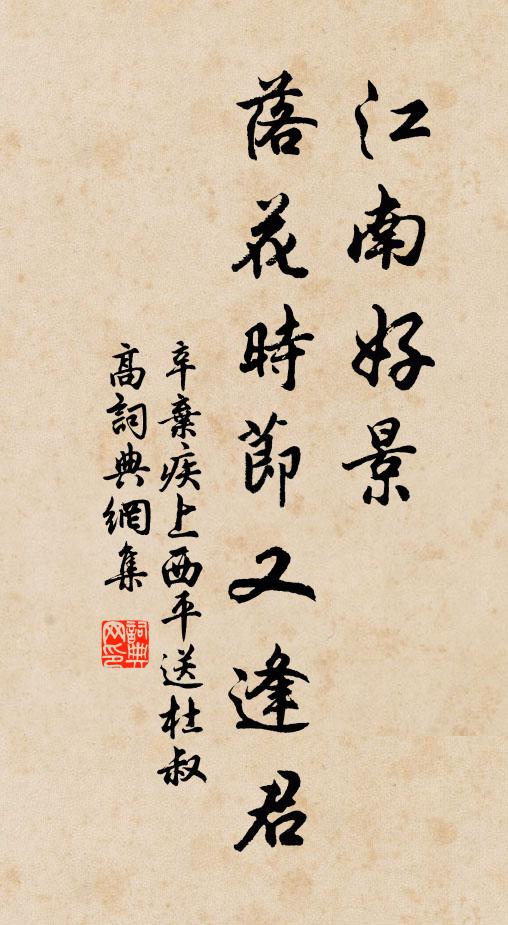 江南好景
落花時節又逢君
辛棄疾上西平送杜叔
高詞典網集
詞典網印